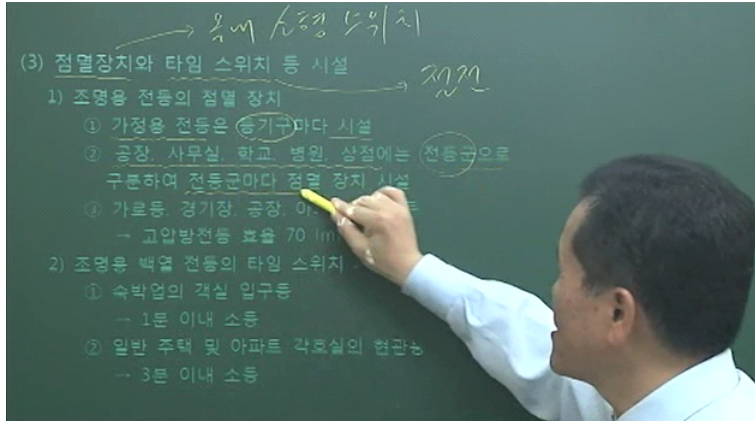 옥내 소형 스위치
(3) 점멸장치와 타임 스위치 등 시설
전전
1) 조명용 전등의 점멸 장치
① 가정용 전등은 등기구마다 시설
② 공장, 사무실, 학교, 병원, 상점에는 전등군으로
구분하여 전등군마다 점멸 장치 시설
③ 가로등, 경기장, 공장,
→ 고압방전등 효율 70 lm
2) 조명용 백열 전등의 타임 스위치
① 숙박업의 객실 입구등
→ 1분 이내 소등
② 일반 주택 및 아파트 각호실의 현관등
→ 3분 이내 소등